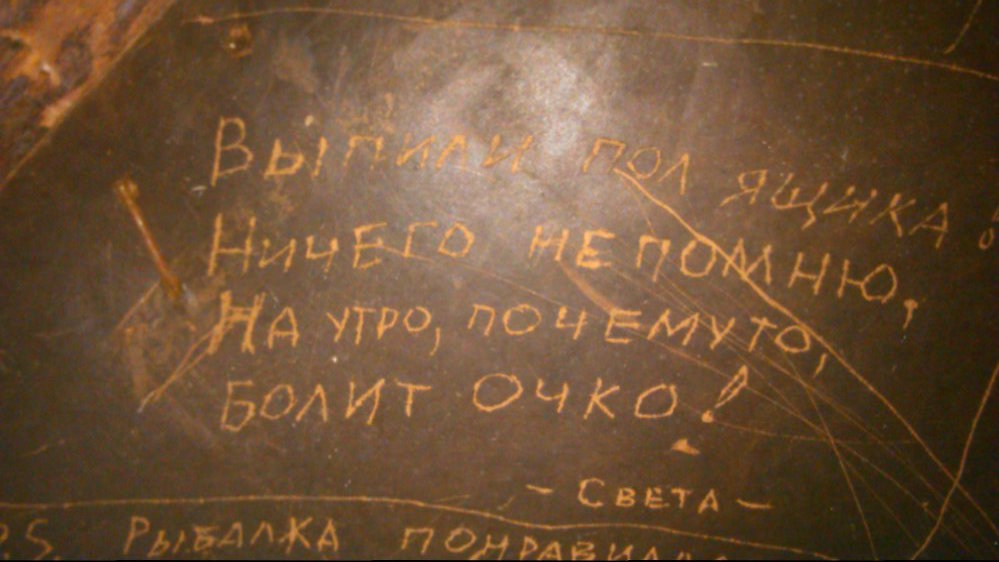 Выпили пол ящика!
Ничего не помню,
На утро, почемуто,
болит очко!
- Света -
P.S. Рыбалка понравилась